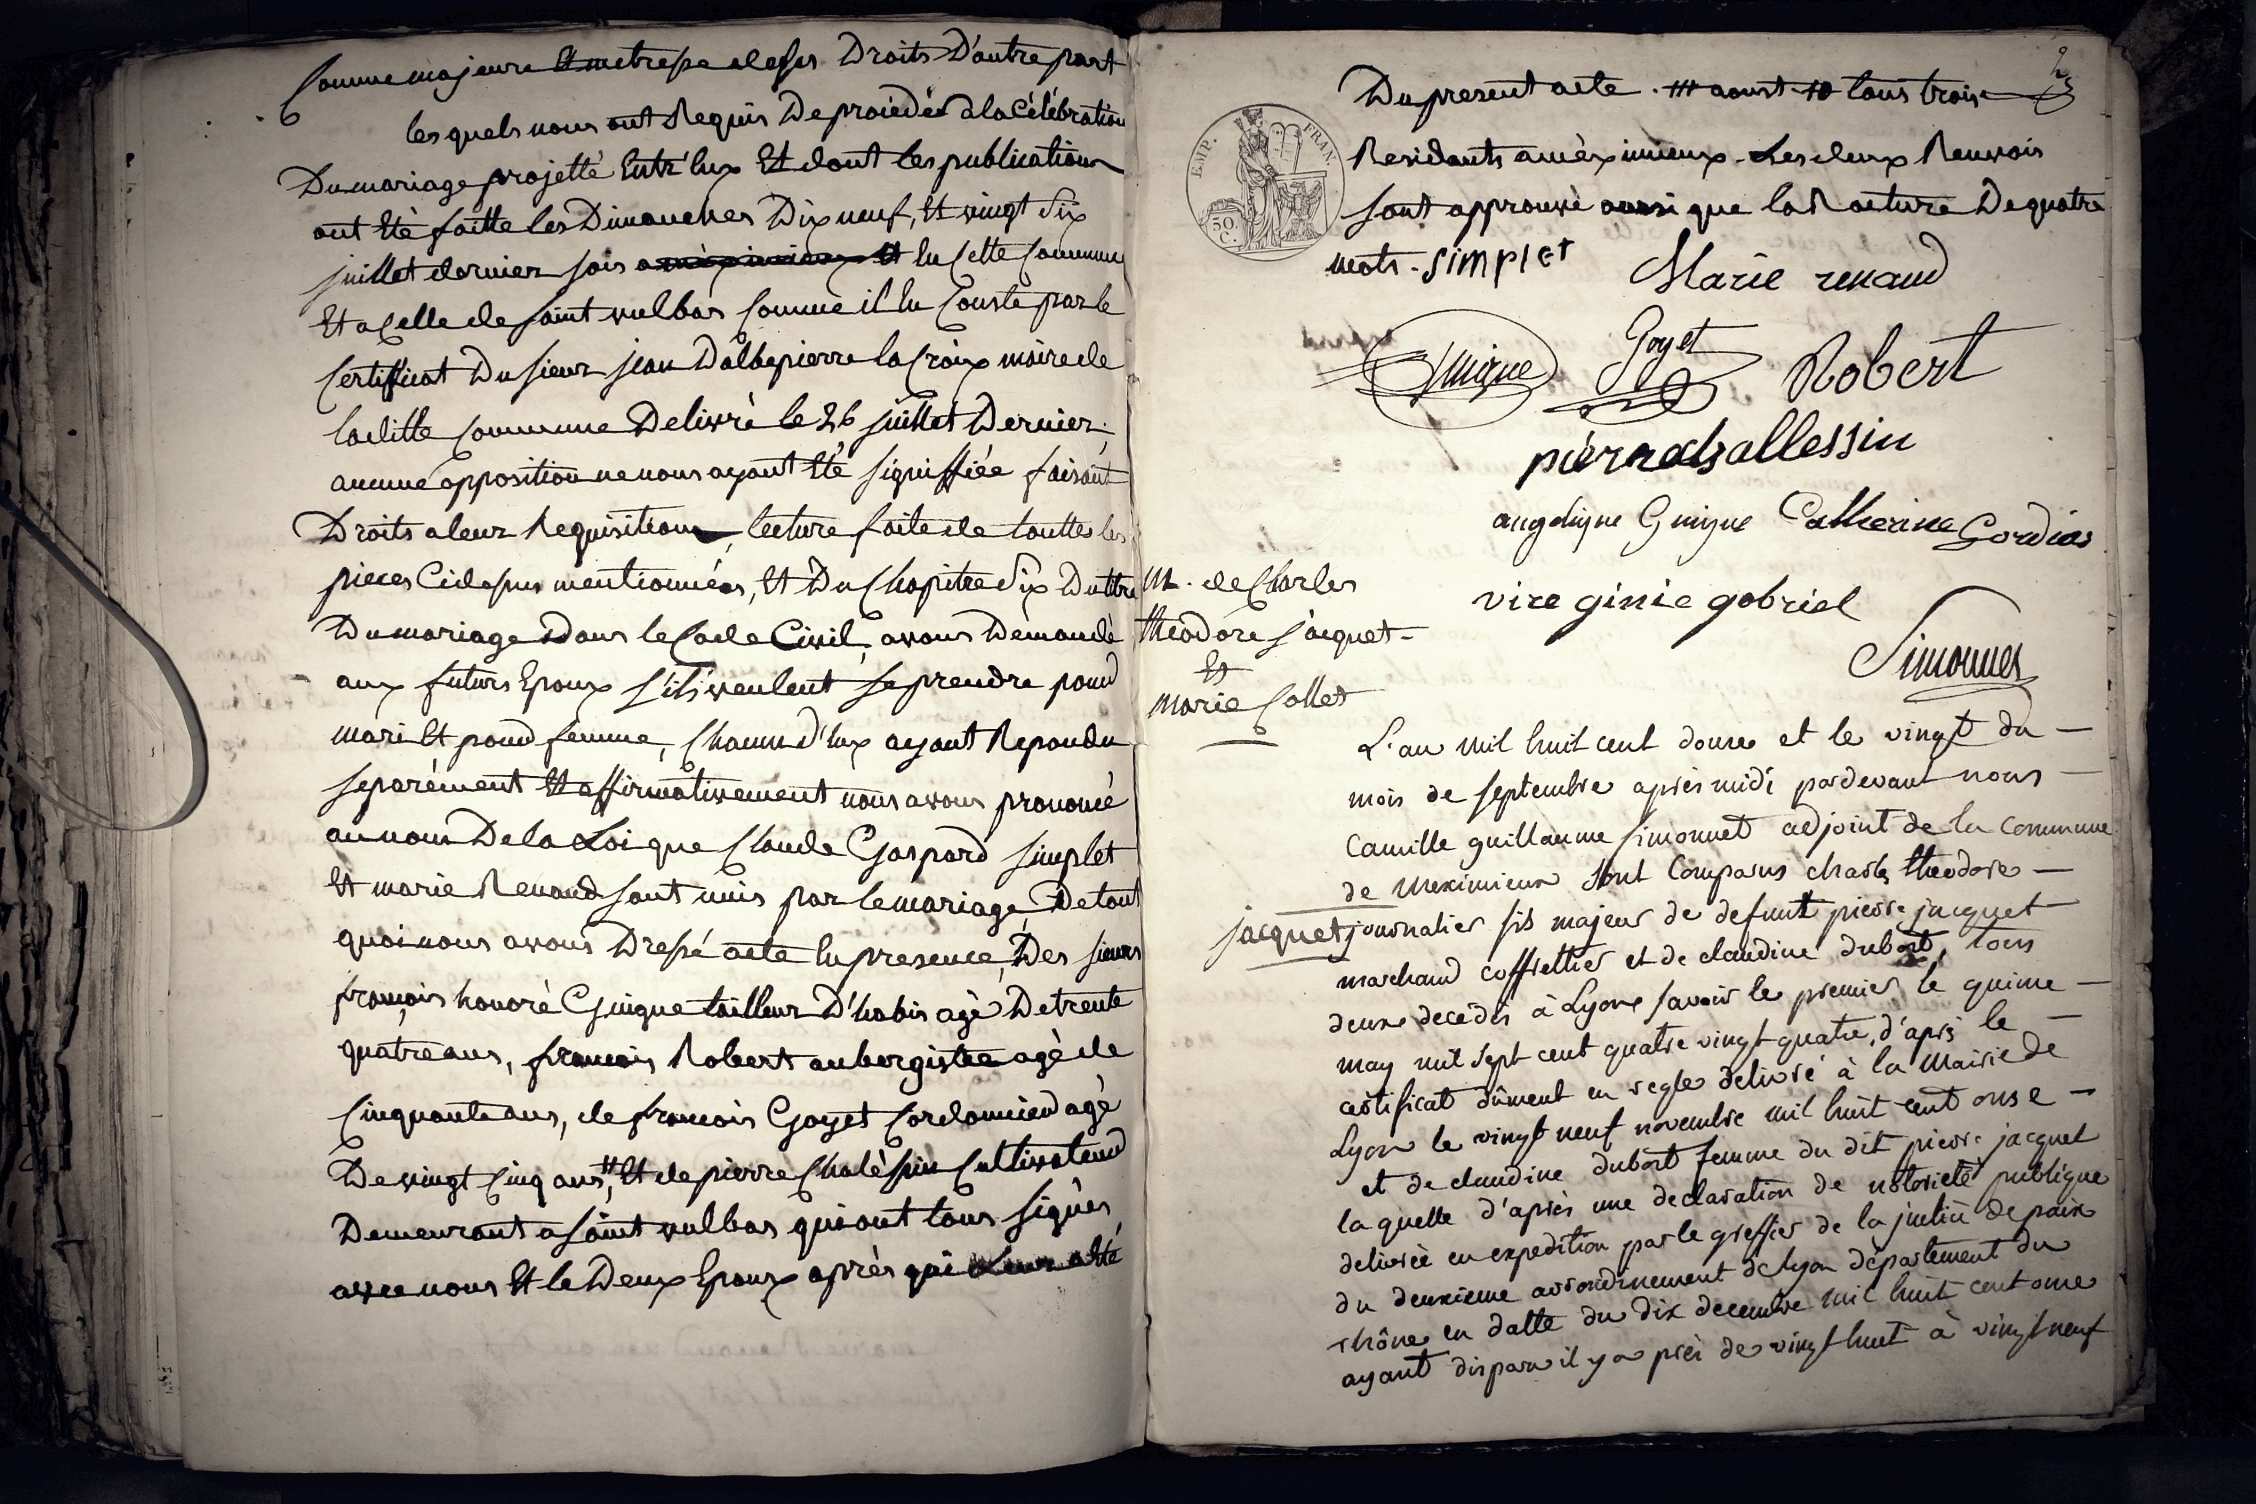 Comme majeure Et metresse de ses Droits D'autre part
les quels nous ont Requis De procédér a la Célébration
Du mariage projetté Entr'Eux Et dont les publications
ont Eté faitte les Dimanches Dix neuf, Et vingt Six
juillet dernier sois a mèximieux Et En Cette Commune
Et a Celle de saint vulbas Comme il En Conste par le
Certifficat Du sieur jean Dalbepierre la Croix màire de
laditte Commune Delivré le 26 juillet Dernier.
aucune opposition ne nous ayant Eté signiffiée faisant
Droits a leur Requisition, lecture faite de touttes les
pieces Cidessus mentionnées, Et Du Chapitre Six Du ttre
Du mariage Dans le Code Civil, avons Démandé
aux futurs Epoux s'ils veulent se prendre pour
mari Et pour femme, Chacun d'Eux ayant Repondu
separément Et affirmativement nous avons prononcé
au nom De la Loi que Claude Gaspard simplet
Et marie Renaud sont unis par le mariage De tout
quoi nous avons Dressé acte En presence, Des sieurs
françois honoré Guigue tailleur D'habis agé De trente
quatre ans, francois Robert aubergistee agé de
Cinquante ans, de francois Goyet Cordonnier agé
De vingt Cinq ans, # Et de pierre Chalèssin Cultivateur
Demeurant a saint vulbas qui ont tous signés
avec nous Et le Deux Epoux après qui Leur a Eté
2
Du present acte. # tous trois
Residants a mèximieux. Les deux Renvois
sont approuvé aussi que la Rature De quatre
mots. Simplet
EMP. FRAN.
50 C.
Marie renaud
Guigue Goyet Robert
pierre challessin
angelique Guigue Catherine Gordias
vire ginie gabriel
Simonnet
M. de Charles
theodore Jacquet
Et
marie Collet
L'an mil huit cent douze et le vingt du
mois de septembre après midi pardevant nous
Camille guillaume simonnet adjoint de la commune
de meximieux sont Comparus charles theodore
jacquet journalier fils majeur de defunt pierre jacquet
marchand coffrettier et de claudine dubost, tous
deux decedés à Lyon savoir le premier le quinze
may mil sept cent quatre vingt quatre, d'après le
certificat dûment en regle delivré à la mairie de
Lyon le vingt neuf novembre mil huit cent onze
et de claudine dubost femme du dit pierre jacquet
la quelle d'après une declaration de notorieté publique
delivrée en expedition par le greffier de la justice de paix
du deuxieme arrondissement de lyon département du
rhône en datte du dix decembre mil huit cent onze
ayant disparu il y a près de vingt huit à vingt neuf